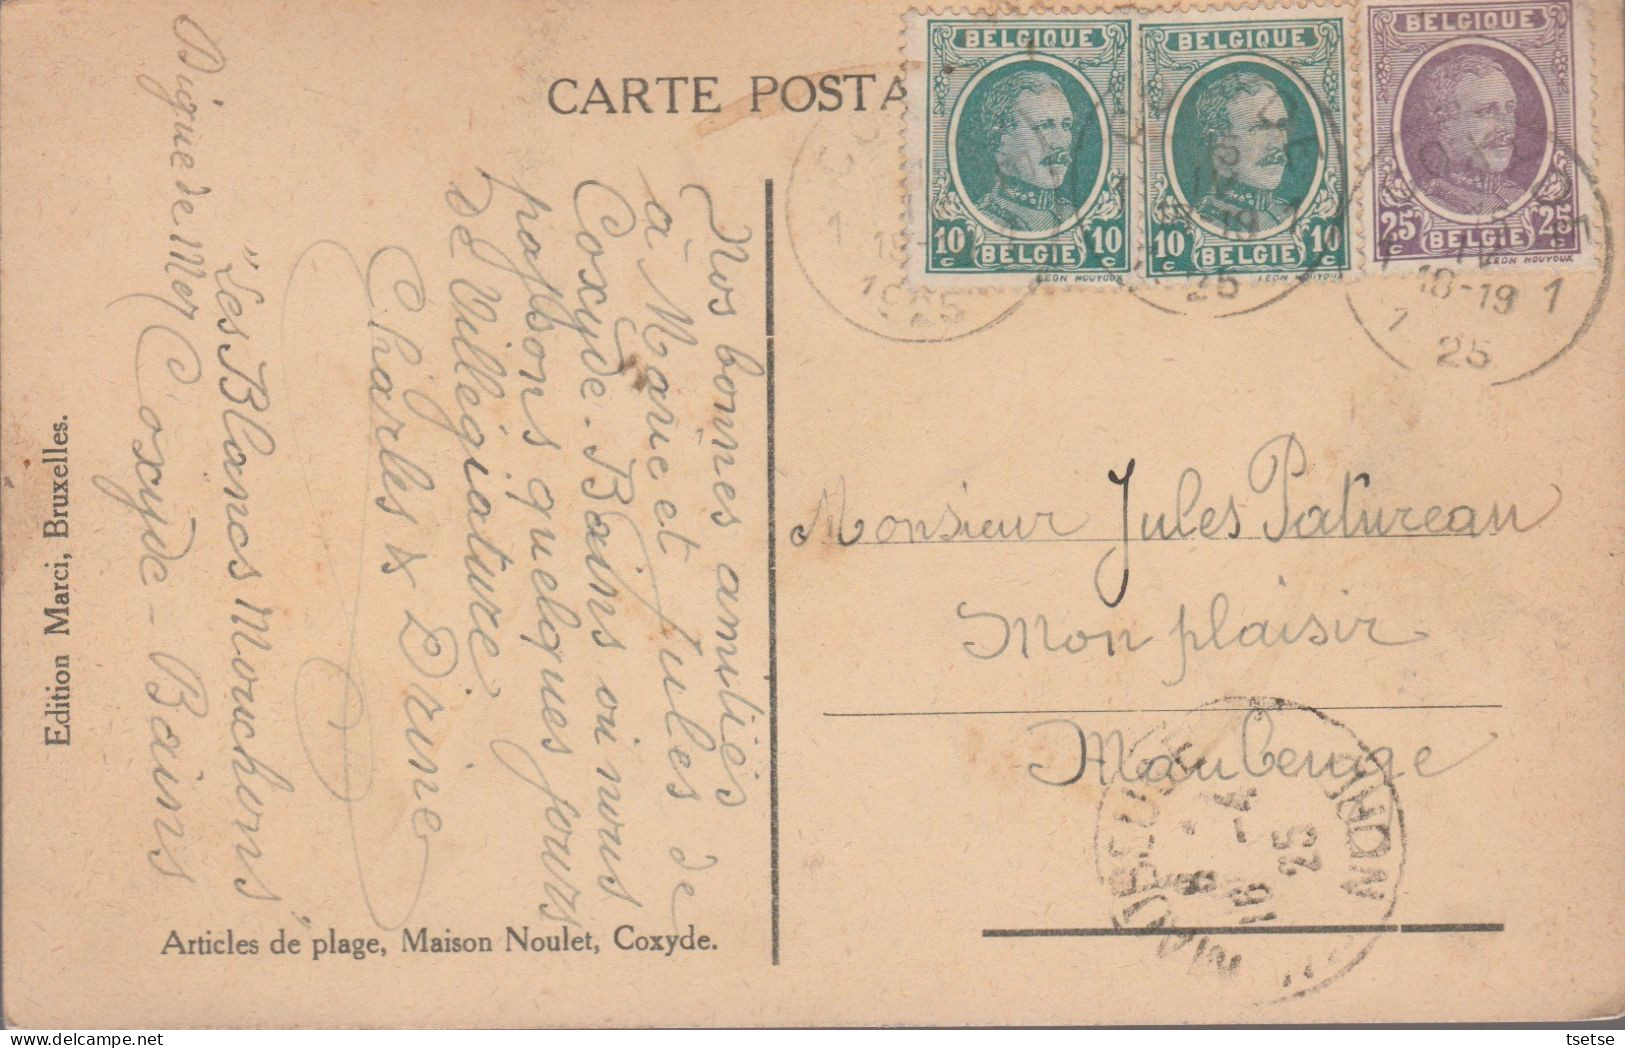 CARTE POSTA
BELGIQUE
BELGIQUE
BELGIQUE
10 c BELGIE 10 c
10 c BELGIE 10 c
25 c BELGIE 25 c
LEON HOUYOUX
LEON HOUYOUX
LEON HOUYOUX
1 18-
1925
18-19 1
25
1 18-19 1
25
Nos bonnes amitiés
à Marie et Jules de
Coxyde-Bains où nous
passons quelques jours
de Villégiature
Charles & Drine
"Les Blancs Mouchons"
Digue de Mer Coxyde-Bains
Monsieur Jules Patureau
Mon plaisir
Maubeuge
MAUBEUGE NORD
25
Edition Marci, Bruxelles.
Articles de plage, Maison Noulet, Coxyde.
tsetse